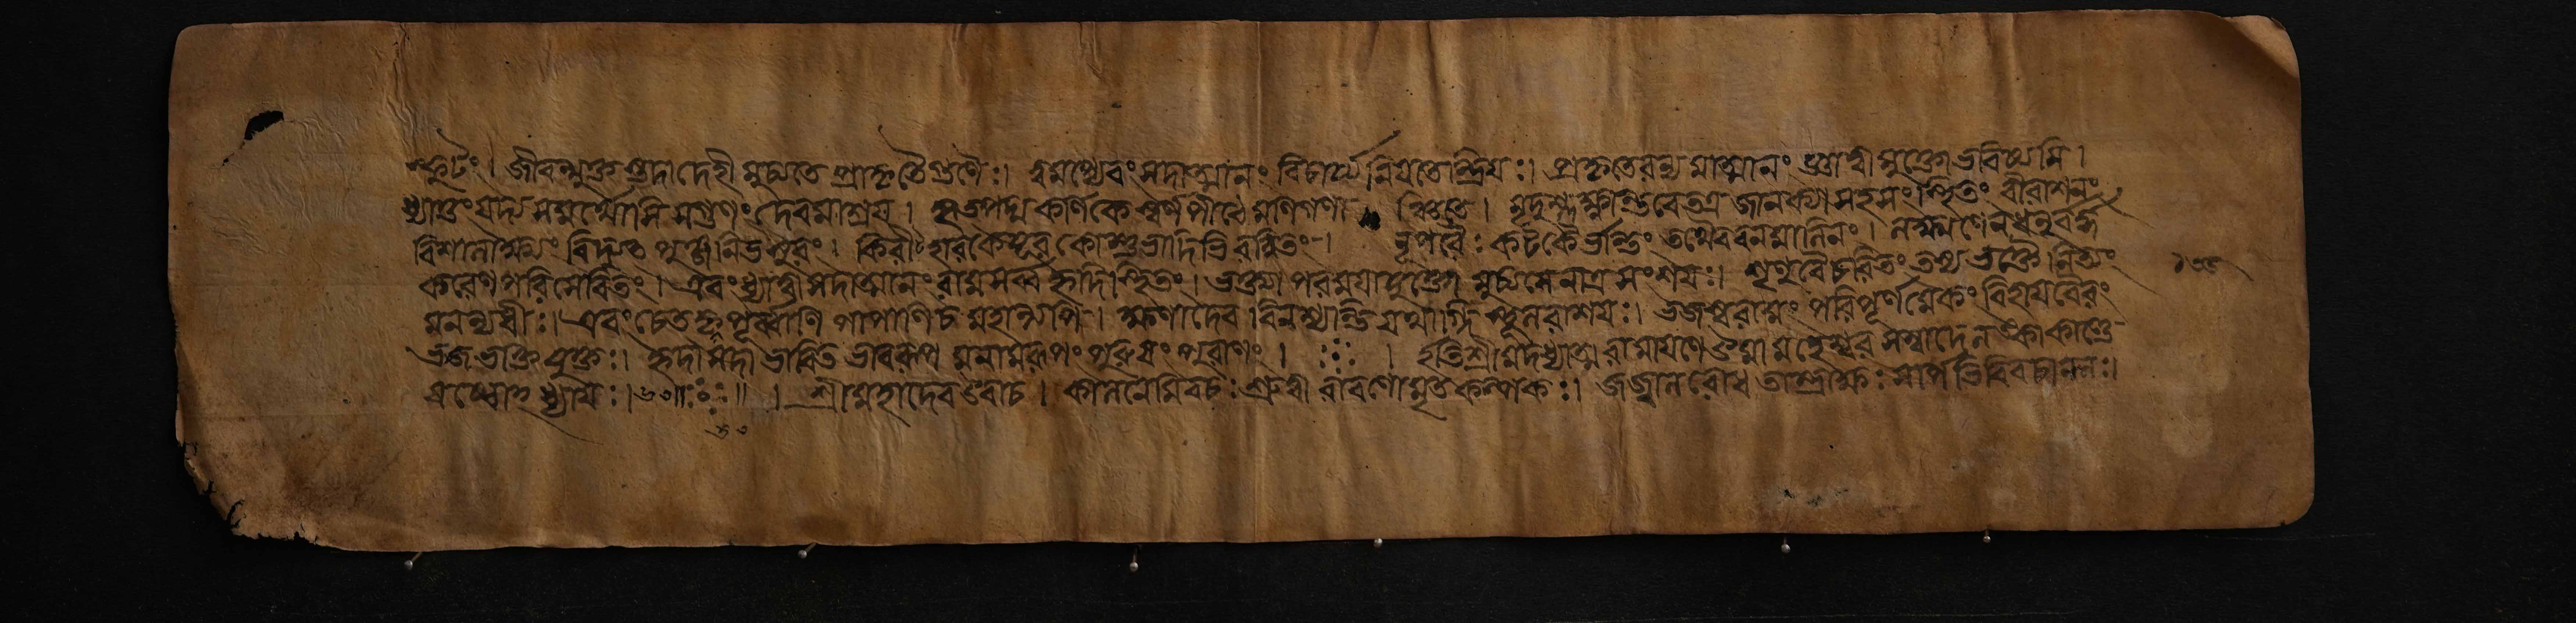 স্ফুটং। জীবন্মুক্তস্তদা দেহী মুচ্যতে প্রাকৃতৈর্গুণৈঃ। ত্বমপ্যেবং সদাত্মানং বিচার্য্য নিয়তেন্দ্রিয়ঃ। প্রকৃতেরন্যমাত্মানং জ্ঞাত্বা মুক্তো ভবিষ্যসি।
ধ্যাতুং যদ্যসমর্থোসি সগুণং দেবমাশ্রয়। হৃৎপদ্মকর্ণিকে স্বর্ণপীঠে মণিগণান্বিতে। মৃদুশ্লক্ষ্ণতরে তত্র জানক্যা সহ সংস্থিতং বীরাসনং
বিশালাক্ষং বিদ্যুৎপুঞ্জনিভাম্বরং। কিরীটহারকেয়ূরকৌস্তুভাদিভিরন্বিতং। নূপুরৈঃ কটকৈর্ভান্তং তথৈব বনমালিনং। লক্ষ্মণেন ধনুর্দ্বন্দ্ব
করেণ পরিসেবিতং। এবং ধ্যাত্বা সদাত্মানং রামং সর্ব্বহৃদিস্থিতং। ভক্ত্যা পরময়া যুক্তো মুচ্যসে নাত্র সংশয়ঃ। শৃণু বৈ চরিতং তস্য ভক্তৈর্নিত্যং
মনন্যধীঃ। এবং চেৎকৃতপূর্ব্বাণি পাপানি চ মহান্ত্যপি। ক্ষণাদেব বিনশ্যন্তি যথাগ্নিস্তূলরাশয়ঃ। ভজস্ব রামং পরিপূর্ণমেকং বিহায় বৈরং
ভজ ভক্তিযুক্তঃ। হৃদা সদা ভাবিতভাবরূপমনামরূপং পুরুষং পুরাণং। ইতি শ্রীমদধ্যাত্মরামায়ণে উমামহেশ্বরসম্বাদে লঙ্কাকাণ্ডে
ষষ্ঠোধ্যায়ঃ।৬॥ । শ্রীমহাদেব উবাচ। কালনেমিবচঃ শ্রুত্বা রাবণোমৃতকল্পকং। জজ্বাল ক্রোধতাম্রাক্ষঃ সর্পিরদ্ভিরিবানলঃ।